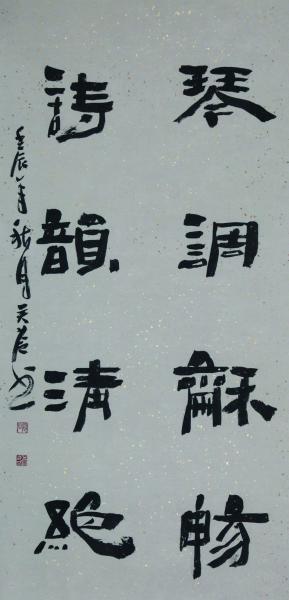 琴調龢暢
詩韻清絕
壬辰年秋月天芒書